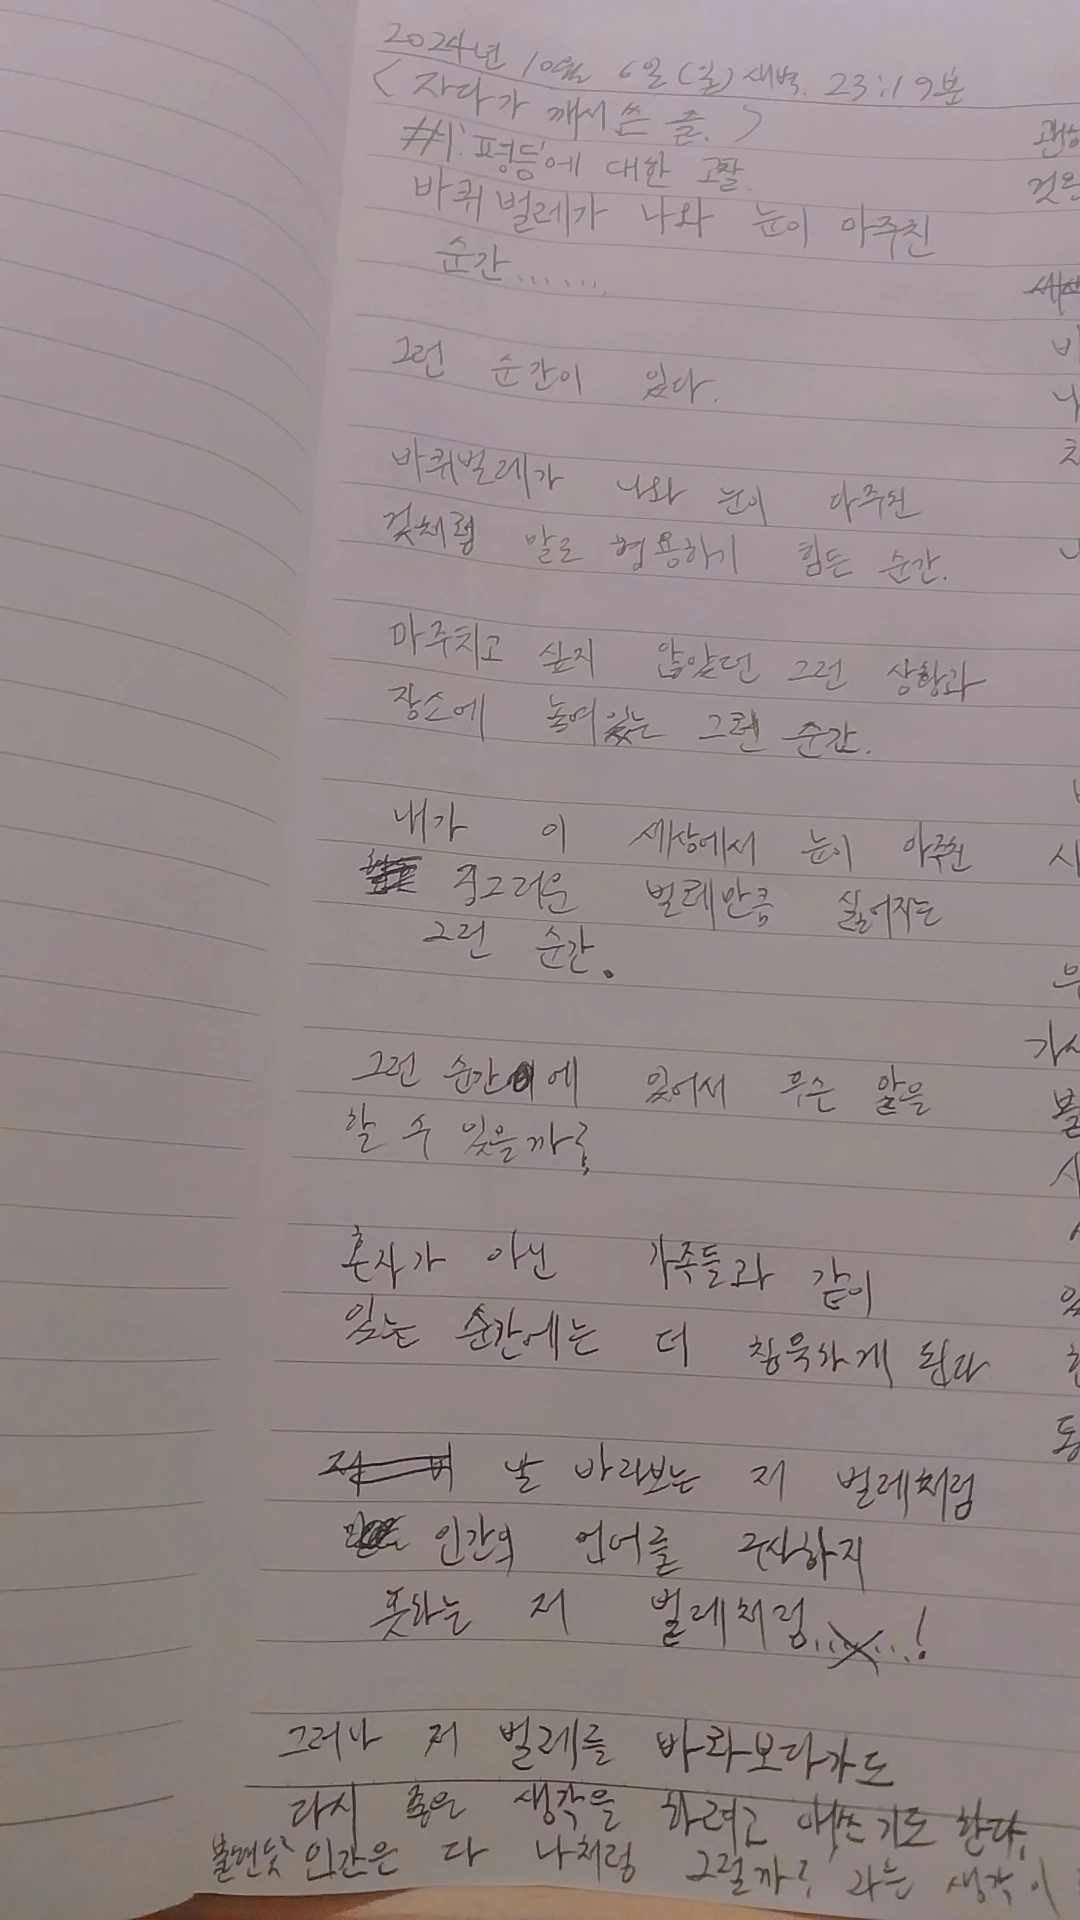 2024년 10월 6일(일) 새벽. 23:19분
<자다가 깨서 쓴 글.>
#1. '평등'에 대한 고찰.
바퀴벌레가 나와 눈이 마주친
순간.......
그런 순간이 있다.
바퀴벌레가 나와 눈이 마주친
것처럼 말로 형용하기 힘든 순간.
마주치고 싶지 않았던 그런 상황과
장소에 놓여있는 그런 순간.
내가 이 세상에서 눈이 마주친
징그러운 벌레만큼 싫어지는
그런 순간.
그런 순간에 있어서 무슨 말을
할 수 있을까?
혼자가 아닌 가족들과 같이
있는 순간에는 더 침묵하게 된다
날 바라보는 저 벌레처럼
인간의 언어를 구사하지
못하는 저 벌레처럼......!
그러나 저 벌레를 바라보다가도
다시 좋은 생각을 하려고 애쓰기도 한다.
불현듯 인간은 다 나처럼 그럴까? 라는 생각이
괜히